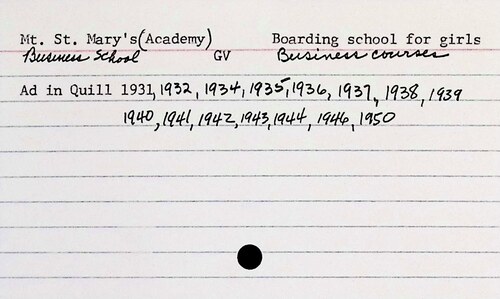 Mt. St. Mary's (Academy) Boarding school for girls
Business School GV Business courses
Ad in Quill 1931, 1932, 1934, 1935, 1936, 1937, 1938, 1939
1940, 1941, 1942, 1943, 1944, 1946, 1950